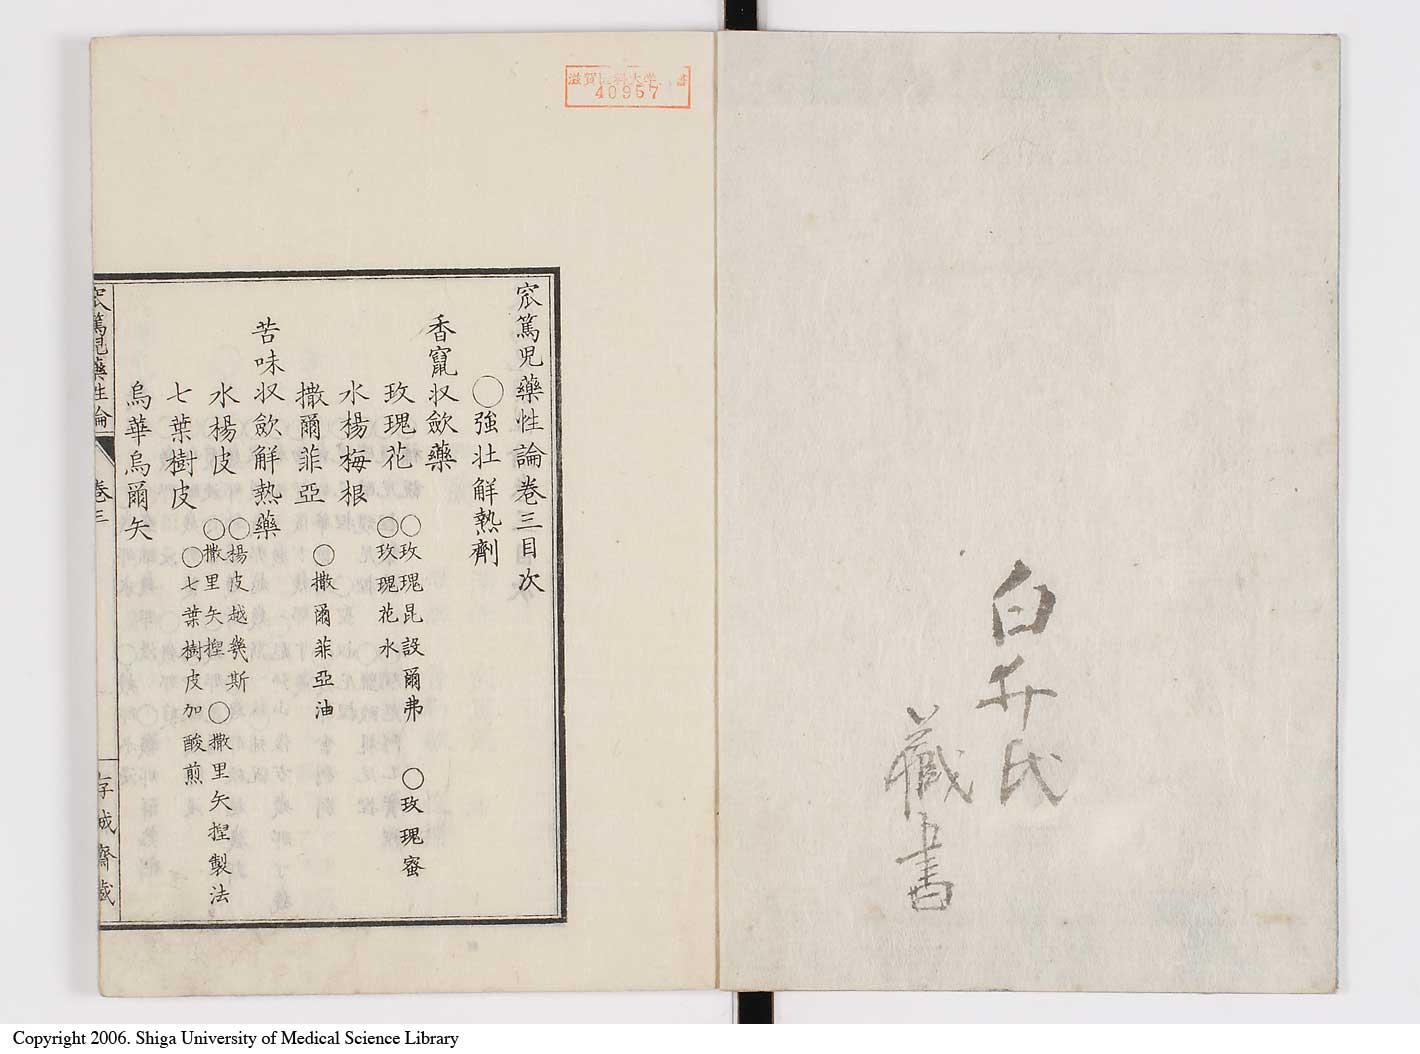 白井氏
藏書
滋賀医科大学 書
40957
窊篤児藥性論卷三目次
○強壮解熱劑
香竄収歛藥
玫瑰花 ○玫瑰昆設爾弗 ○玫瑰蜜
○玫瑰花水
水楊梅根
撒爾菲亞 ○撒爾菲亞油
苦味収歛解熱藥
水楊皮 ○楊皮越幾斯
○撒里矢捏 ○撒里矢捏製法
七葉樹皮 ○七葉樹皮加酸煎
烏華烏爾矢
窊篤児藥性論 卷三 存誠齋藏
Copyright 2006. Shiga University of Medical Science Library